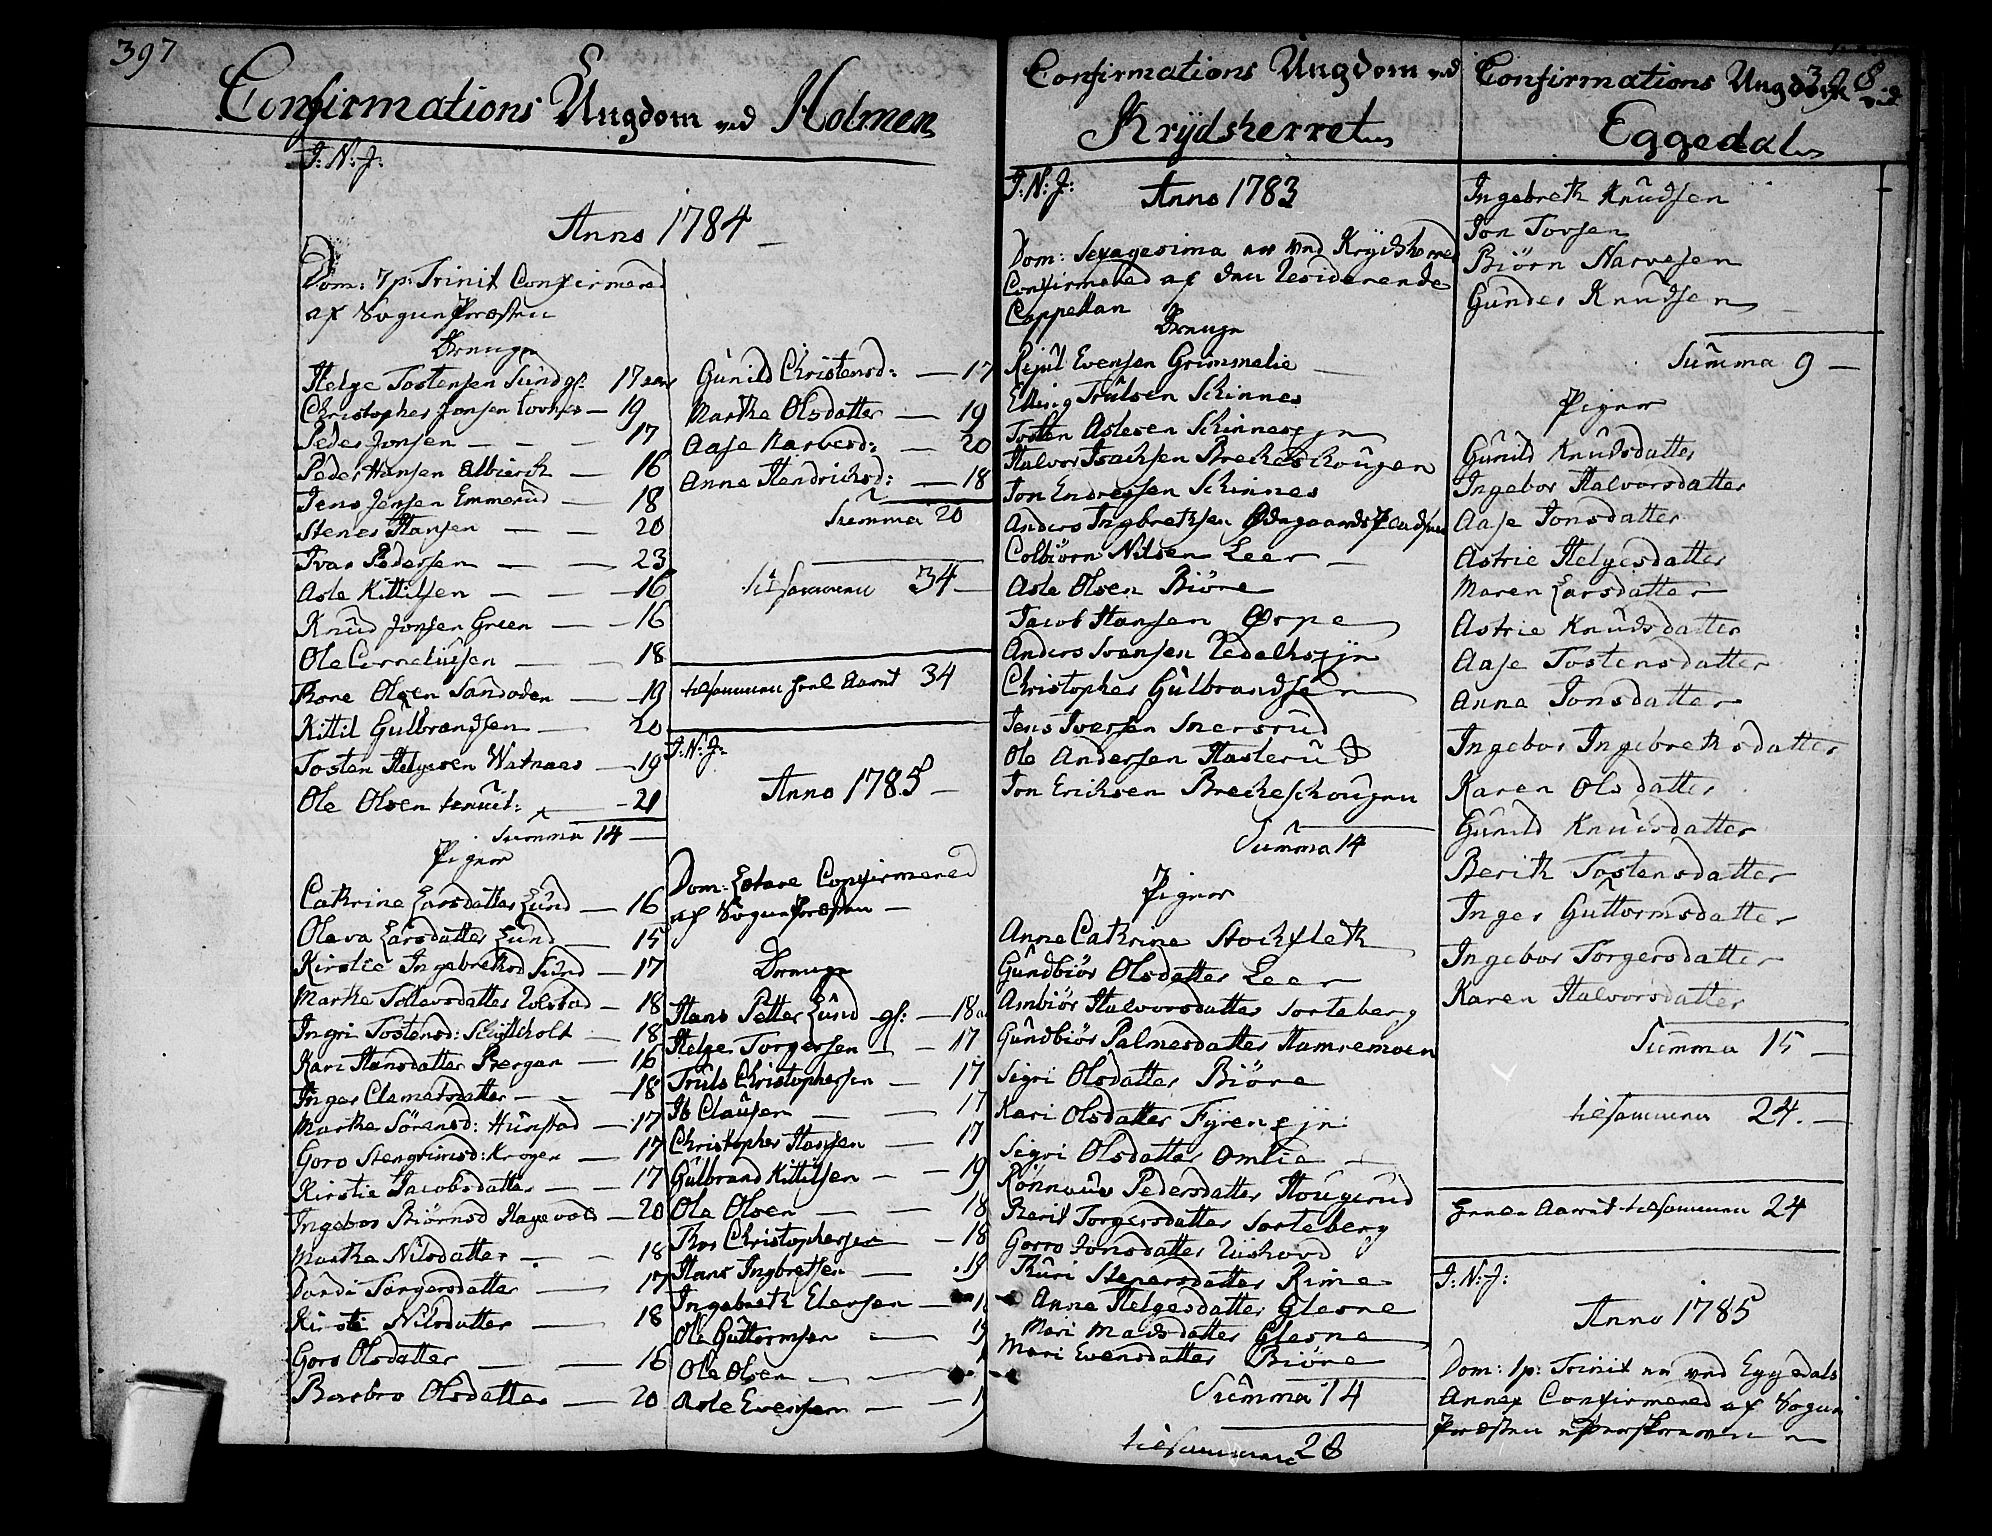 397
Confirmations Ungdom ved Holmen
J: N: J:
Anno 1784
Dom: 7 p: Trinit Confirmered
af Sogne Præsten
Drenge
Helge Tostensen Sundgf: 17 aar
Christopher Jonsen — 19
Peder Jonsen — 17
Peder Hansen Albierk — 16
Jens Jensen Emmerud — 18
Stener Hansen — 20
Ivar Pedersen — 23
Asle Kittilsen — 16
Knud Jonsen Green — 16
Ole Corneliussen — 18
Thore Olsen Sandaden — 19
Kittil Gulbrandsen — 20
Tosten Helgesen Watnaas — 19
Ole Olsen — 21
Summa 14 —
Piger
Cathrine Larsdatter Lund — 16
Olava Larsdatter Lund — 15
Kirstie Ingebrethsd Lund — 17
Marthe Tollevsdatter Rolstad — 18
Ingri Tostensd: — 18
Kari Hansdatter Bergan — 16
Inger Clemetsdatter — 18
Marthe Sörensd: Hunstad — 17
Goro Stengrimsd: Krogen — 17
Kirstie Jacobsdatter — 17
Ingebor Biörnsd Hagevold — 20
Marthe Nilsdatter — 18
Dordi Torgersdatter — 17
Kirsti Nilsdatter — 18
Goro Olsdatter — 16
Barbro Olsdatter — 20
Gunild Christensd: — 17
Marthe Olsdatter — 19
Aase Narvesd: — 20
Anne Hendrichsd: — 18
Summa 20
tilsammen 34 —
tilsammen hele Aaret 34
J: N: J:
Anno 1785 —
Dom: Letare Confirmered
af Sogne Præsten —
Drenge
Hans Petter Lund gf: — 18
Helge Torgersen — 17
Truls Christophersen — 17
Ib Clausen — 17
Christopher Hansen — 17
Gulbrand Kittilsen — 19
Ole Olsen — 18
Thor Christophersen — 18
Hans Ingbretsen — 19
Ingebreth Elensen — 1
Ole Guttormsen — 19
Ole Olsen —
Asle Evensen — 1
Confirmations Ungdom ved
Krydsherret
J: N: J: Anno 1783
Dom: Sexagesima er ved Krydsherred
Confirmered af den Residerende
Cappellan
Drenge
Kiøl Evensen Grimmelie —
Elling Trulsen Skinnes
Tosten Aslesen Skinnes
Halvor Isachsen Brecheschougen
Jon Endressen Skinnes
Anders Ingbrethsen
Colbiörn Nilsen Leer —
Asle Olsen Biöre
Jacob Hansen Ørpe
Anders Svensen
Christopher Gulbrandsen
Jens Iversen Snersrud
Ole Andersen Hasterud
Jon Erichsen Brecheschougen
Summa 14
Piger
Anne Cathrine Stockfleth
Gundbiör Olsdatter Leer
Ambiör Halvorsdatter Sorteberg
Gundbiör Palmesdatter Hamremoen
Sigri Olsdatter Biöre
Kari Olsdatter Fyren
Sigri Olsdatter Omlie —
Rönnaue Pedersdatter Hougerud
Berit Torgersdatter Sorteberg
Gorro Jonsdatter
Thuri Stenersdatter Rime
Anne Helgesdatter Glesne
Mari Madsdatter Glesne
Mari Evensdatter Biöre
Summa 14
tilsammen 28
398
Confirmations Ungdom ved
Eggedal
Ingebreth Knudsen
Jon Torsen
Biörn Narvesen
Gunder Knudsen
Summa 9 —
Piger
Gunild Knudsdatter
Ingebor Halvorsdatter
Aase Jonsdatter
Astrie Helgesdatter
Maren Larsdatter
Astrie Knudsdatter
Aase Tostensdatter
Anne Jonsdatter
Ingebor Ingebrethsdatter
Karen Olsdatter
Gunild Knudsdatter
Berith Tostensdatter
Inger Guttormsdatter
Ingebor Torgersdatter
Karen Halvorsdatter
Summa 15 —
tilsammen 24. —
Aaret tilsammen 24
J: N: J:
Anno 1785
Dom: 1 p: Trinit er ved Eggedals
Annex Confirmered af Sogne
Præsten